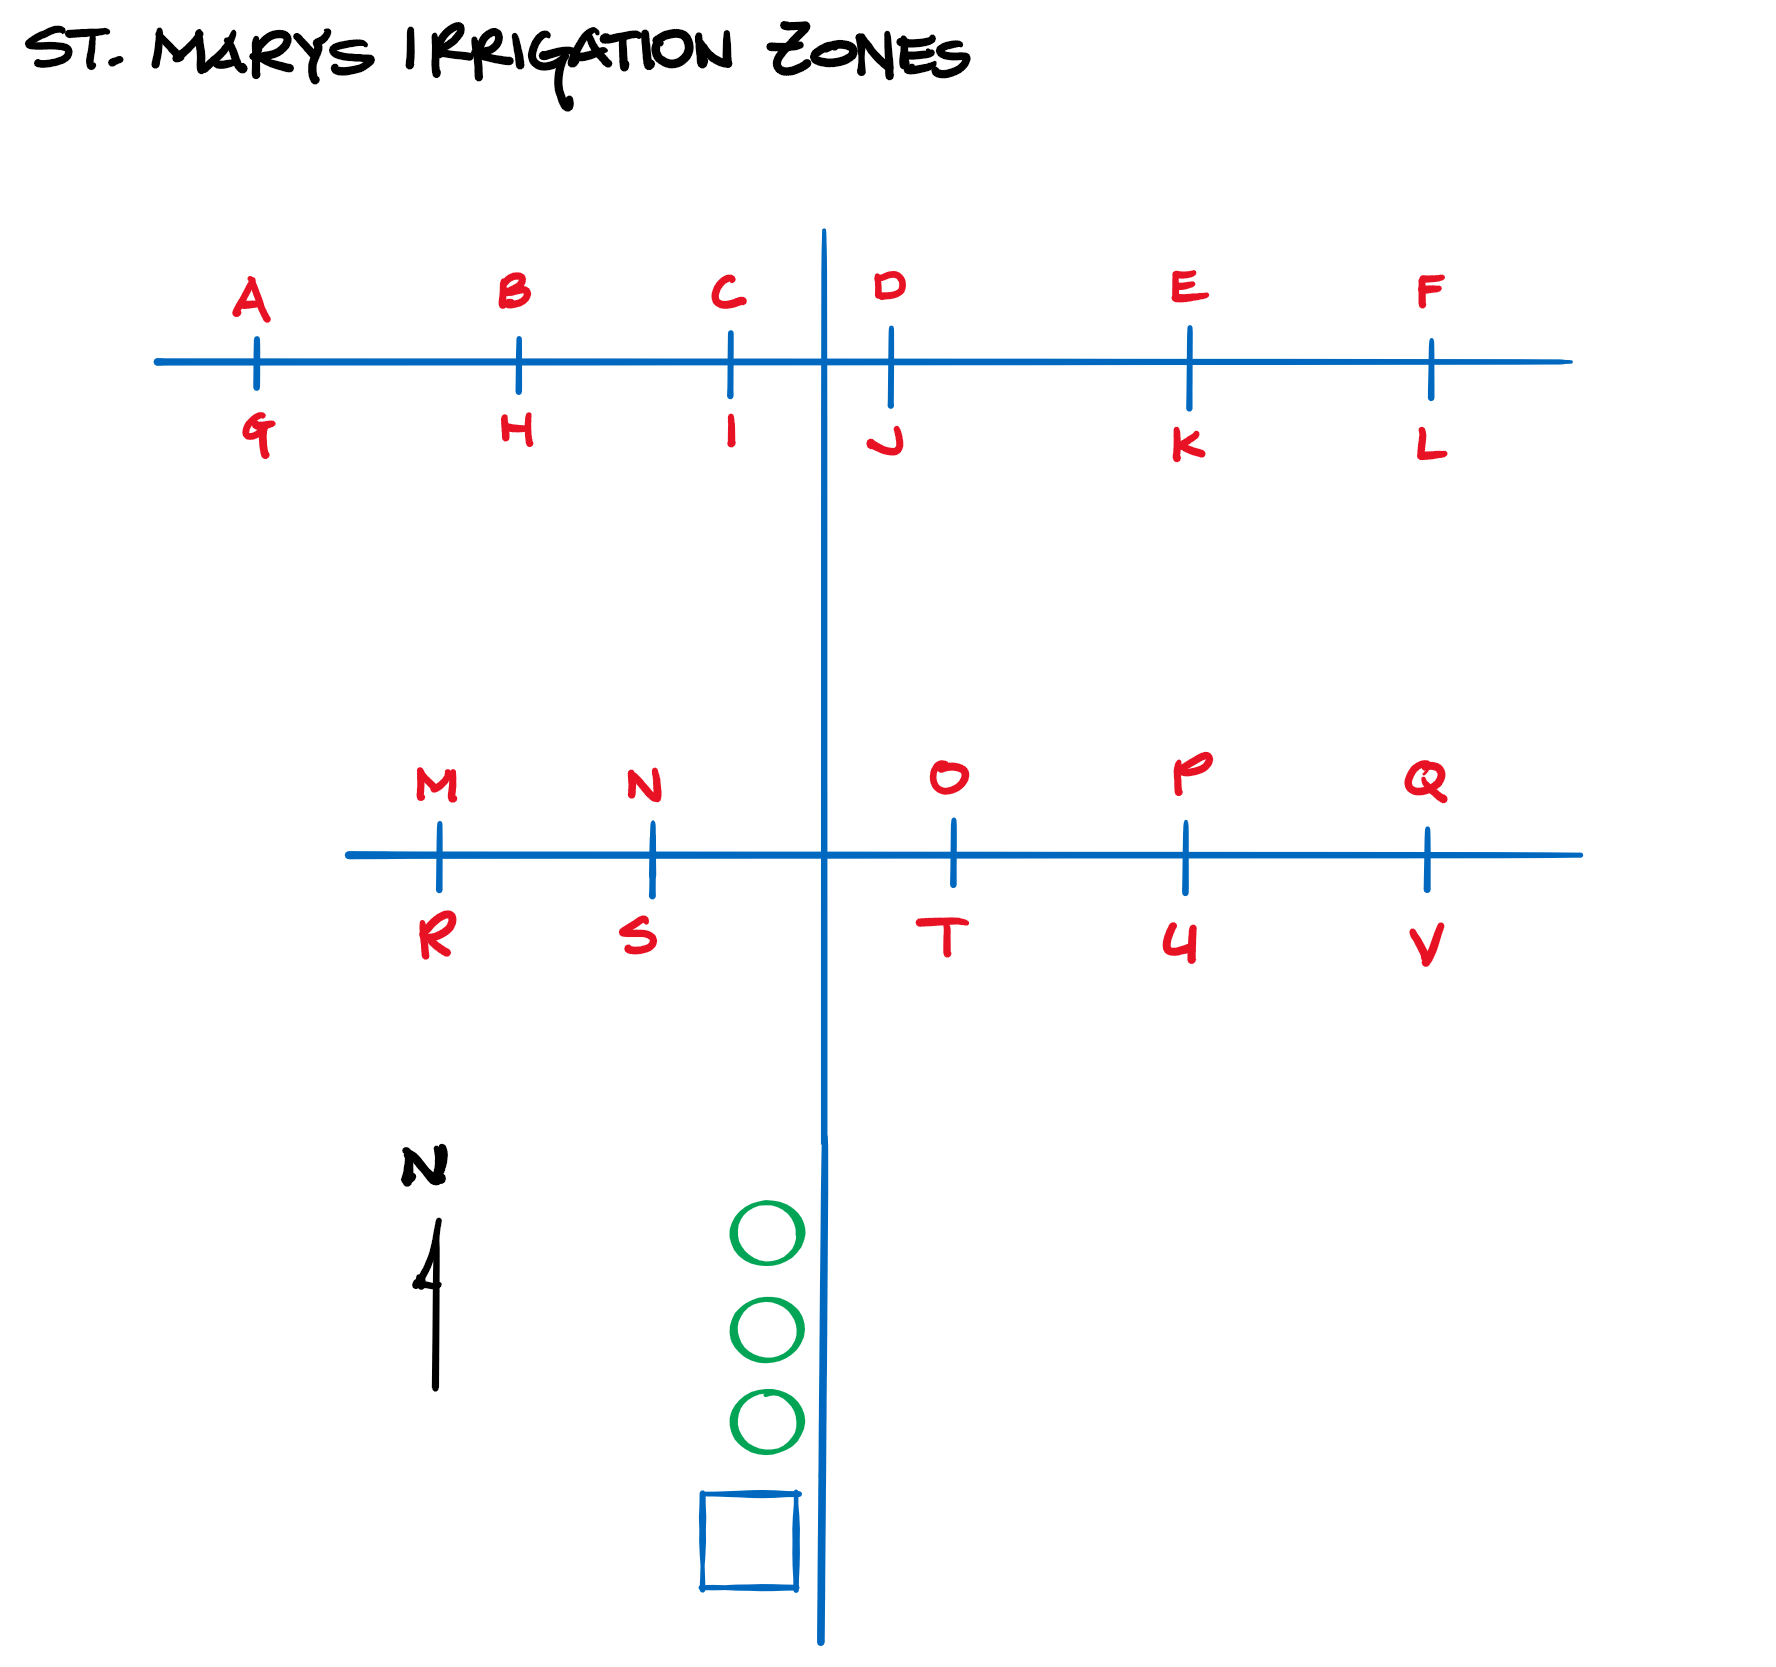 ST. MARYS IRRIGATION ZONES
A B C D E F
G H I J K L
M N O P Q
R S T U V
N